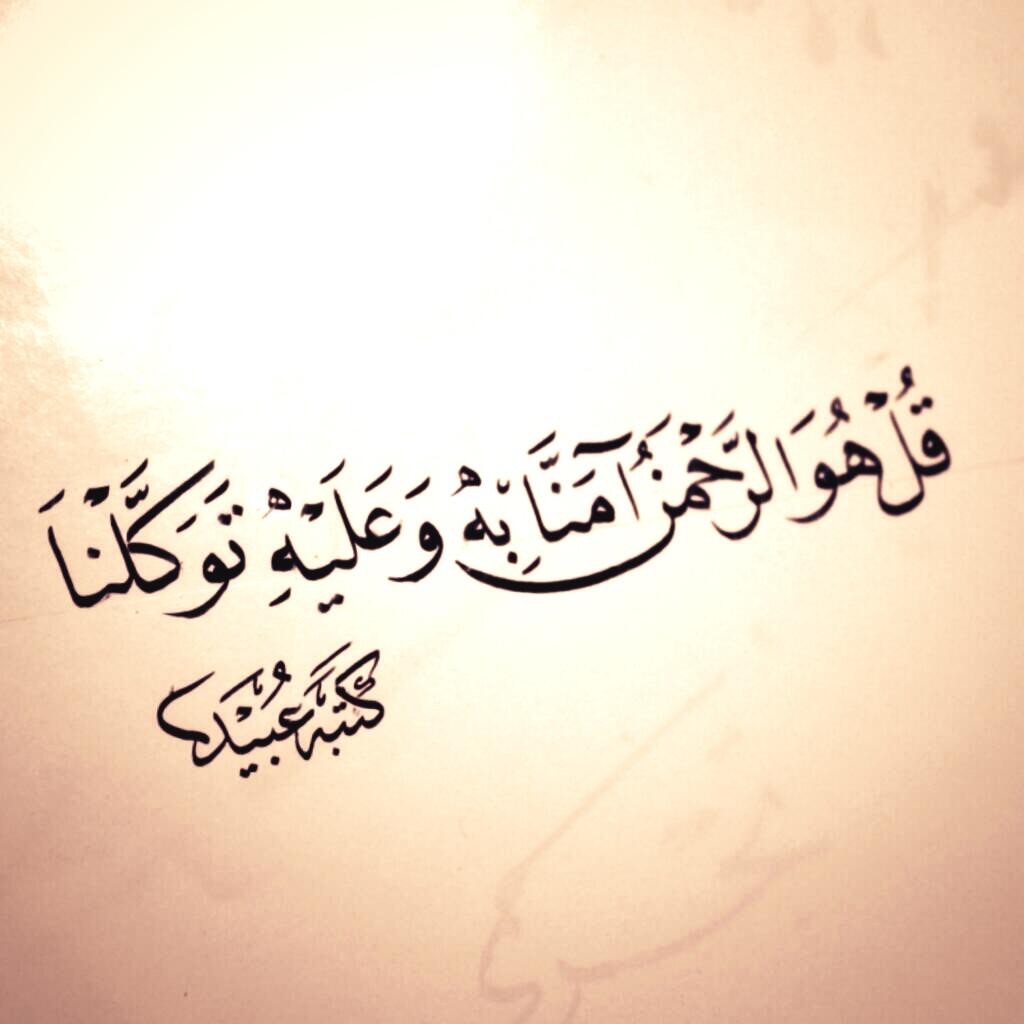 قُلْ هُوَ الرَّحْمٰنُ آمَنَّا بِهٖ وَعَلَيْهِ تَوَكَّلْنَا
كتبه عبيده